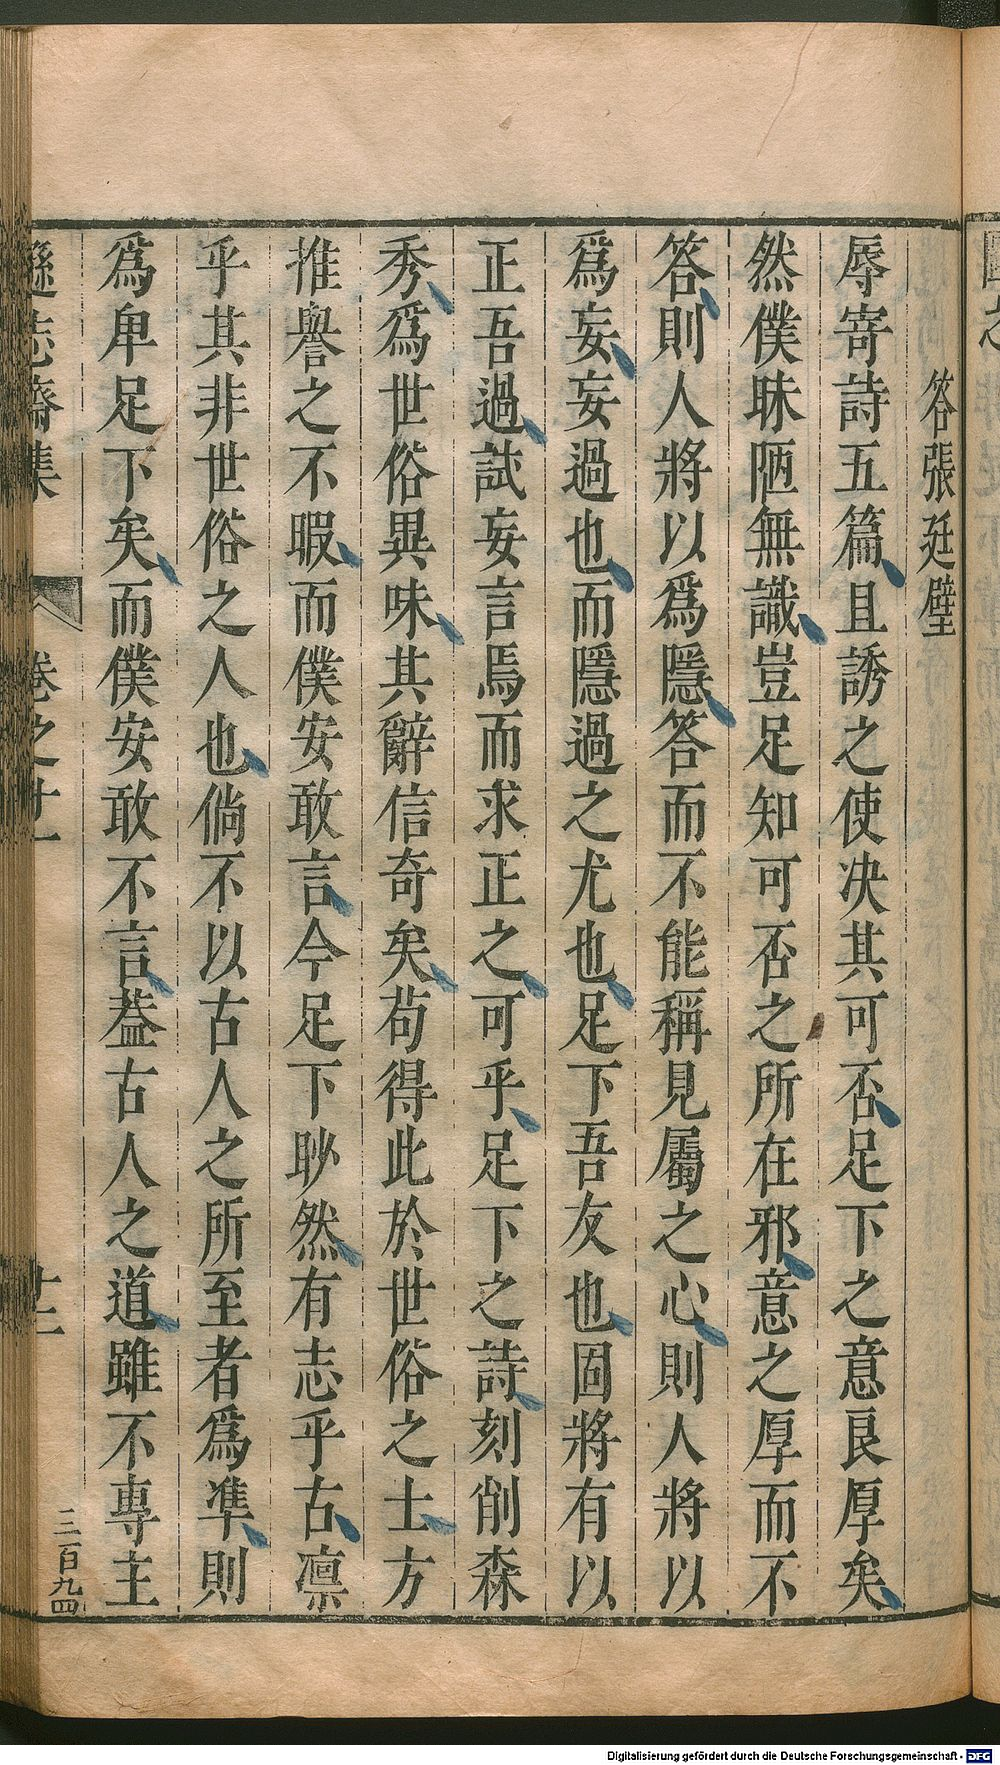 答張廷璧
辱寄詩五篇且誘之使决其可否足下之意良厚矣
然僕昧陋無識豈足知可否之所在邪意之厚而不
答則人將以爲隱答而不能稱見屬之心則人將以
爲妄妄過也而隱過之尤也足下吾友也固將有以
正吾過試妄言焉而求正之可乎足下之詩刻削森
秀爲世俗異味其辭信奇矣苟得此於世俗之士方
推譽之不暇而僕安敢言今足下眇然有志乎古凛
乎其非世俗之人也倘不以古人之所至者爲準則
爲卑足下矣而僕安敢不言葢古人之道雖不專主
遜志齋集
卷之廿一
廿二
三百九四
Digitalisierung gefördert durch die Deutsche Forschungsgemeinschaft - DFG